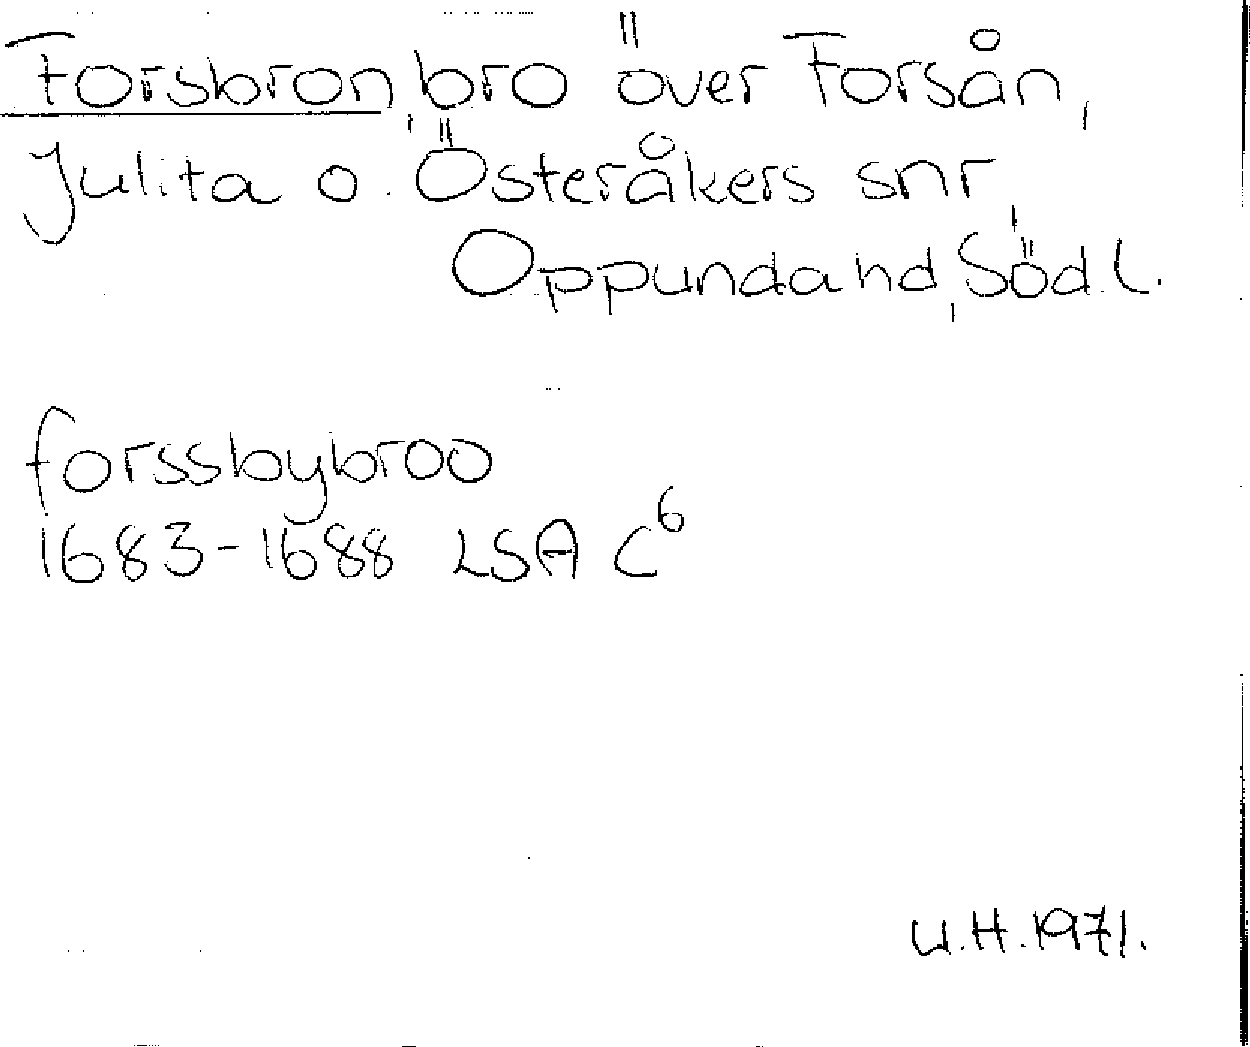 Forsbron, bro över Forsån,
Julita o. Österåkers snr,
Oppunda hd, Söd.l.
forssbybroo
1683-1688 LSA C⁶
U.H. 1971.